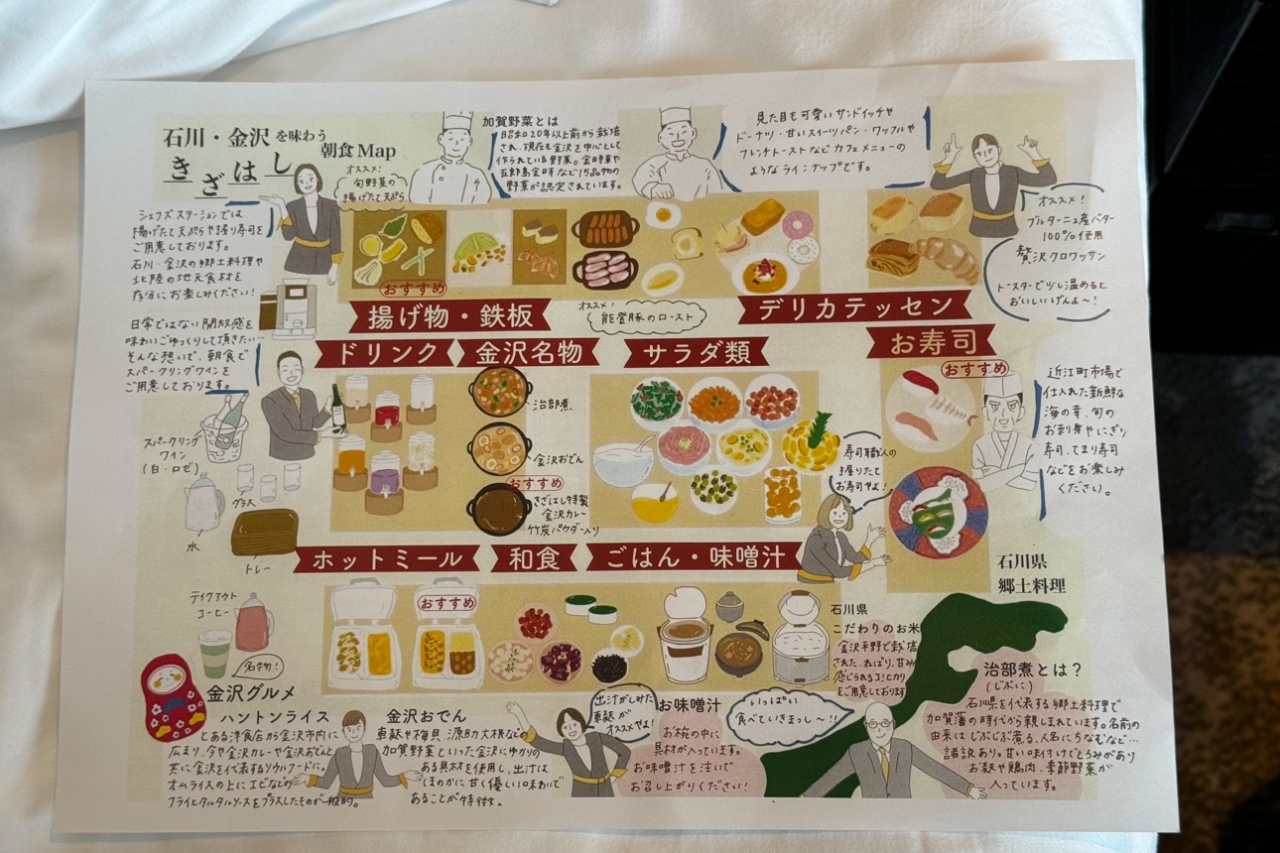 石川・金沢を味わう
きざはし 朝食Map
シェフズステーションでは
揚げたて天ぷらや握り寿司を
ご用意しております。
石川・金沢の郷土料理や
北陸の地元食材を
存分にお楽しみください!
オススメ!
旬野菜の
揚げたて天ぷら
加賀野菜とは
昭和20年以上前から栽培
され、現在も金沢を中心として
作られている野菜。金時草や
五郎島金時など15品物の
野菜が認定されています。
見た目も可愛いサンドイッチや
ドーナツ・甘いスイーツパン・ワッフルや
フレンチトーストなどカフェメニューの
ようなラインナップです。
オススメ!
ブルターニュ産バター
100%使用
贅沢クロワッサン
トースターで少し温めると
おいしいげんよ〜!
おすすめ
揚げ物・鉄板
オススメ!
能登豚のロースト
デリカテッセン
日常ではない開放感を
味わいごゆっくりして頂きたい…
そんな想いで、朝食で
スパークリングワインを
ご用意しております。
ドリンク
金沢名物
サラダ類
お寿司
おすすめ
スパークリング
ワイン
(白・ロゼ)
グラス
水
トレー
治部煮
金沢おでん
おすすめ
きざはし特製
金沢カレー
竹炭パウダー入り
寿司職人の
握りたて
お寿司やよ!
近江町市場で
仕入れた新鮮な
海の幸、旬の
お刺身やにぎり
寿司、てまり寿司
などをお楽しみ
ください。
ホットミール
和食
ごはん・味噌汁
石川県
郷土料理
テイクアウト
コーヒー
おすすめ
名物!
石川県
こだわりのお米
金沢平野で栽培
された、ねばり、甘みが
感じられるコシヒカリ
をご用意しております
金沢グルメ
ハントンライス
とある洋食店から金沢市内に
広まり、今や金沢カレーや金沢おでんと
共に金沢を代表するソウルフードに。
オムライスの上にエビなどの
フライとタルタルソースをプラスしたものが一般的。
金沢おでん
車麩や梅貝、源助大根などの
加賀野菜といった金沢にゆかりの
ある具材を使用し、出汁は
ほのかに甘く優しい味わいで
あることが特徴。
出汁がしみた
車麩が
オススメやよ!
お味噌汁
お椀の中に
具材が入っています。
お味噌汁を注いで
お召し上がりください!
いっぱい
食べていきまっし〜!!
治部煮とは?
(じぶに)
石川県を代表する郷土料理で
加賀藩の時代から親しまれています。名前の
由来はじぶじぶ煮る、人名にちなむなど…
諸説あり。甘い味付けでとろみがあり
お麩や鶏肉、季節野菜が
入っています。